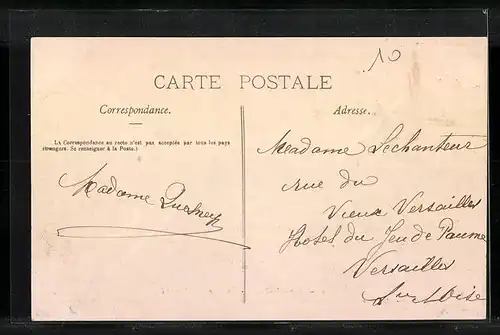 10
CARTE POSTALE
Correspondance.
Adresse.
LA Correspondance au recto n'est pas acceptée par tous les pays
étrangers. (Se renseigner à la Poste.)
Madame
Madame Léchanteur
rue du
Vieux Versailles
Hotel du Jeu de Paume
Versailles
Sne & Oise